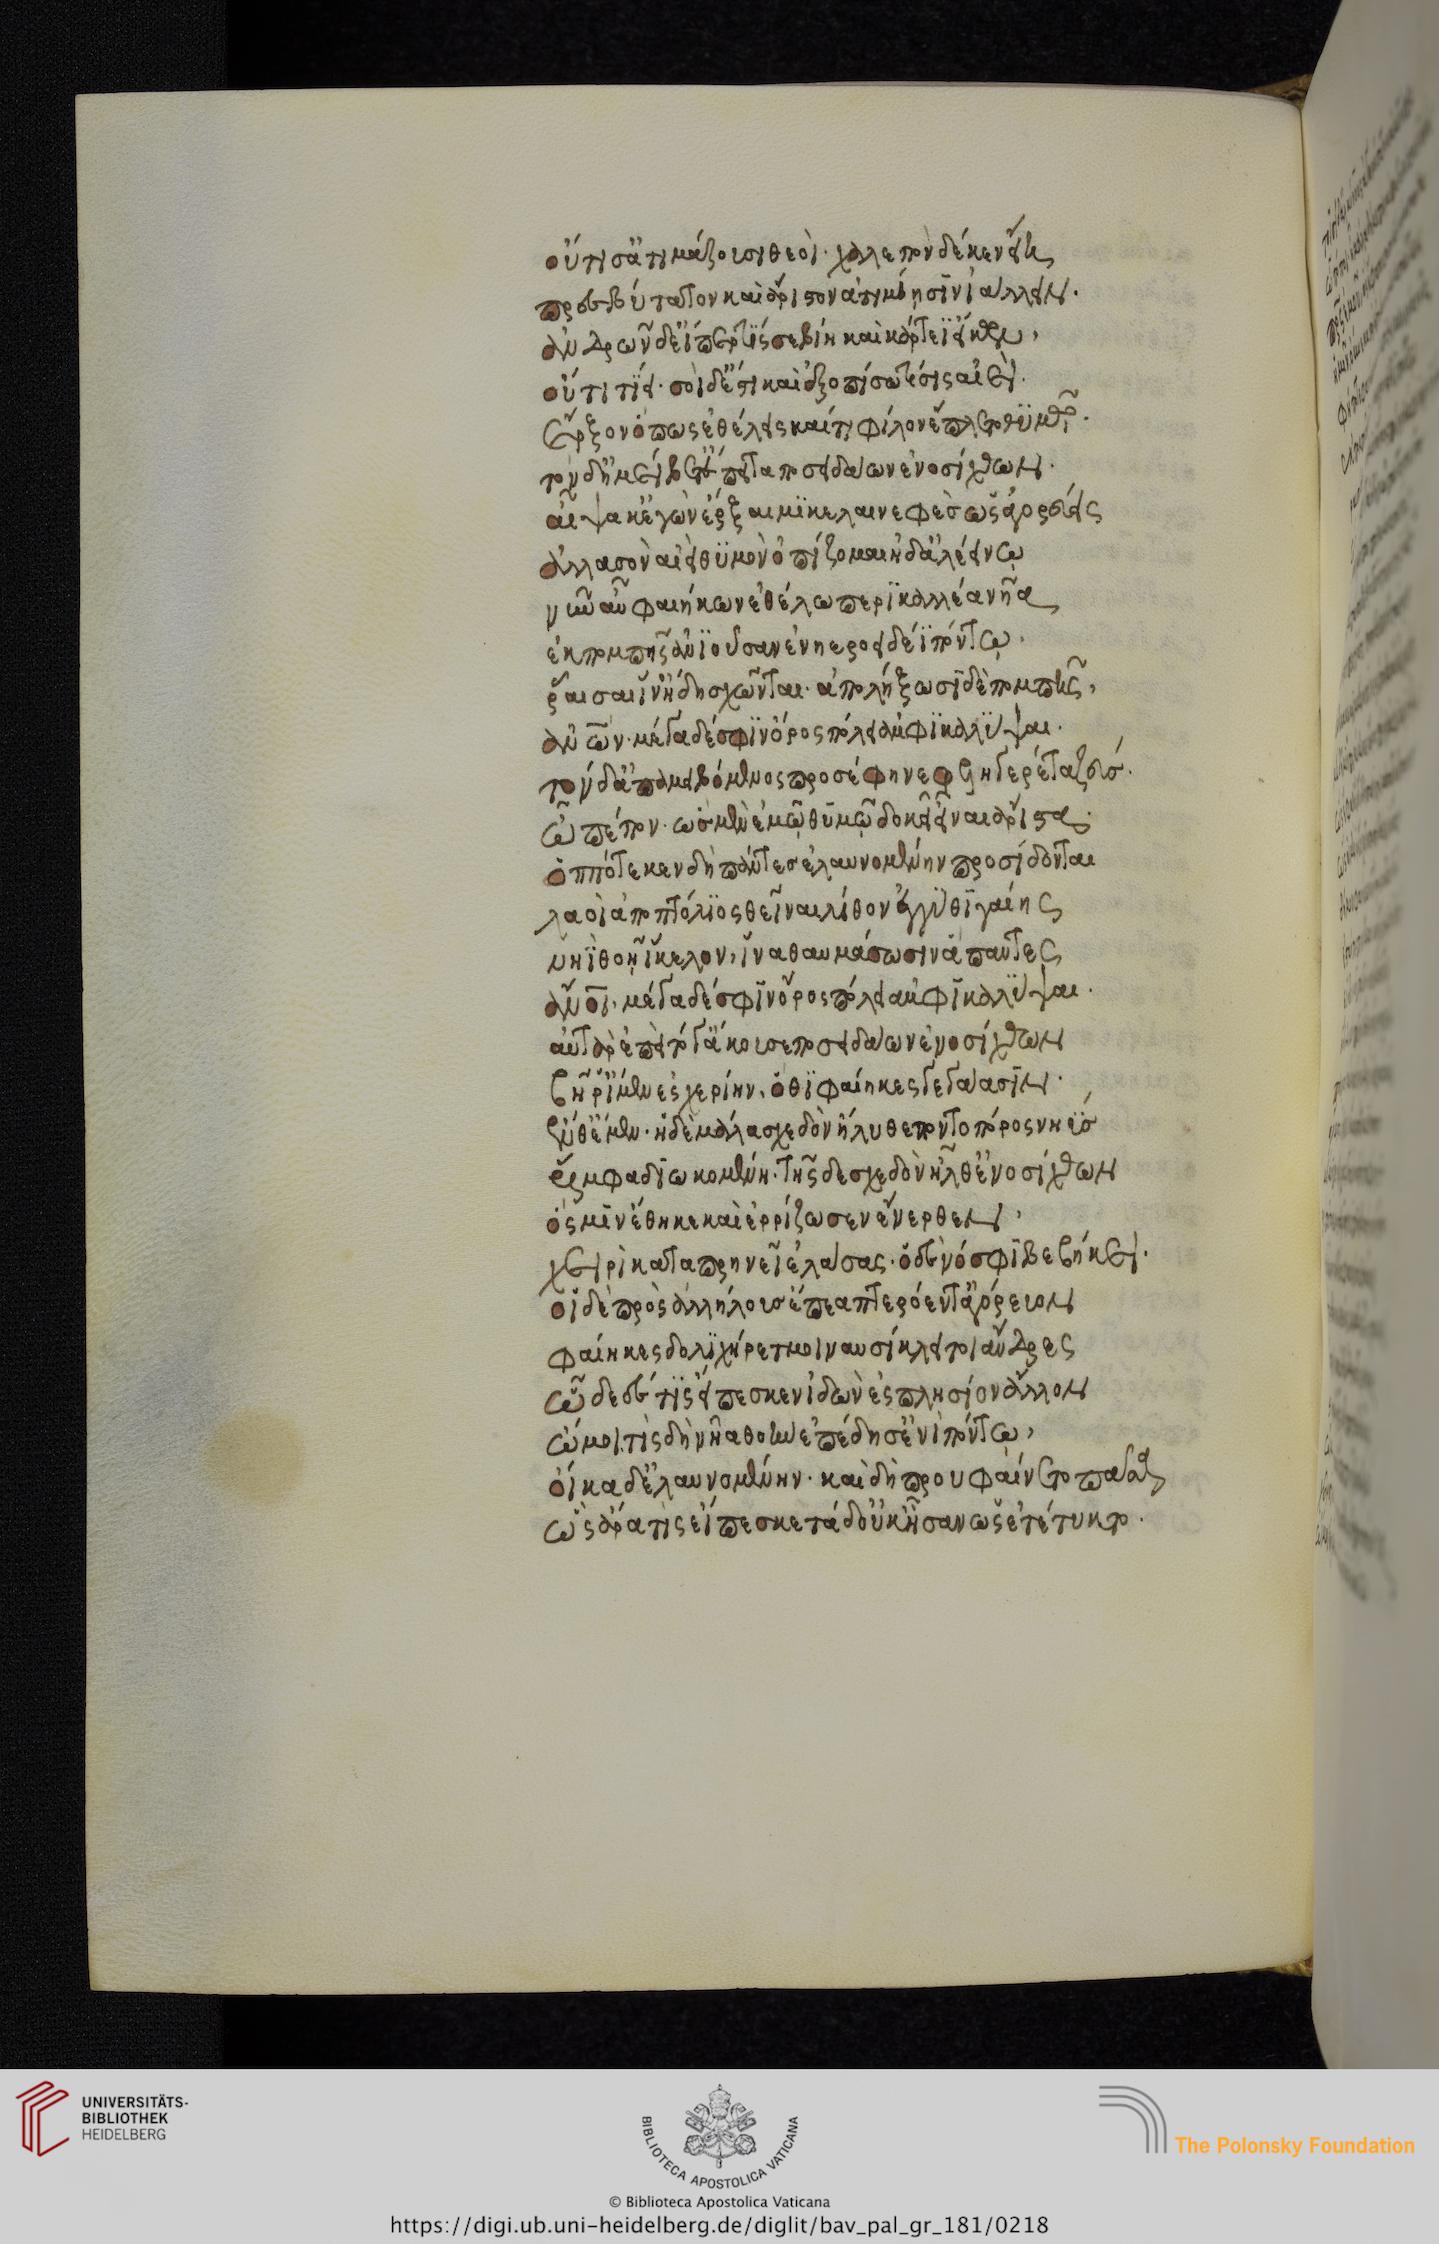 οὔτι σ' ἀτιμάζουσι θεοί· χαλεπὸν δέ κεν εἴη
πρεσβύτατον καὶ ἄριστον ἀτιμίησιν ἰάλλειν·
ἀνδρῶν δ' εἴπερ τίς σε βίη καὶ κάρτεϊ εἴκων,
οὔτι τίει· σοὶ δ' ἔστι καὶ ἐξοπίσω τίσις αἰεί·
ἔρξον ὅπως ἐθέλεις καί τι φίλον ἔπλετο θυμῷ·
τὸν δ' ἠμείβετ' ἔπειτα ποσειδάων ἐνοσίχθων·
αἶψά κ' ἐγὼν ἔρξαιμι κελαινεφὲς ὡς ἀγορεύεις
ἀλλὰ σὸν αἰεὶ θυμὸν ὀπίζομαι ἠδ' ἀλεείνω
νῦν αὖ φαιήκων ἐθέλω περικαλλέα νῆα
ἐκ πομπῆς ἀνιοῦσαν ἐν ἠεροειδέϊ πόντῳ·
ῥαῖσαι ἵν' ἤδη σχῶνται· ἀπολήξωσι δὲ πομπῆς,
ἀνθρώπων· μέγα δέ σφιν ὄρος πόλει ἀμφικαλύψαι·
τὸν δ' ἀπαμειβόμενος προσέφη νεφεληγερέτα ζεύς·
ὦ πέπον· ὡς μὲν ἐμῷ θυμῷ δοκεῖ εἶναι ἄριστα·
ὁππότε κεν δὴ πάντες ἐλαυνομένην προσίδωνται
λαοὶ ἀπὸ πτόλιος θεῖναι λίθον ἐγγύθι γαίης
νηῒ θοῇ ἴκελον, ἵνα θαυμάσωσιν ἅπαντες
ἄνθρωποι, μέγα δέ σφιν ὄρος πόλει ἀμφικαλύψαι·
αὐτὰρ ἐπεὶ τόγ' ἄκουσε ποσειδάων ἐνοσίχθων
βῆ ῥ' ἴμεν ἐς σχερίην, ὅθι φαίηκες γεγάασιν·
ἔνθ' ἔμεν· ἡ δὲ μάλα σχεδὸν ἤλυθε ποντοπόρος νηῦς
ῥίμφα διωκομένη· τῆς δὲ σχεδὸν ἦλθ' ἐνοσίχθων
ὅς μιν ἔθηκε καὶ ἐρρίζωσεν ἔνερθεν,
χειρὶ καταπρηνεῖ ἐλάσας· ὁ δὲ νόσφι βεβήκει·
οἱ δὲ πρὸς ἀλλήλους ἔπεα πτερόεντ' ἀγόρευον
φαίηκες δολιχήρετμοι ναυσίκλειτοι ἄνδρες
ὧδε δέ τις εἴπεσκεν ἰδὼν ἐς πλησίον ἄλλον
ὤμοι τὶς δὴ νῆα θοὴν ἐπέδησ' ἐνὶ πόντῳ,
οἴκαδ' ἐλαυνομένην· καὶ δὴ προυφαίνετο πᾶσα
ὣς ἄρα τὶς εἴπεσκε τὰ δ' οὐκ ἤισαν ὡς ἐτέτυκτο·
UNIVERSITÄTS-
BIBLIOTHEK
HEIDELBERG
BIBLIOTECA APOSTOLICA VATICANA
The Polonsky Foundation
© Biblioteca Apostolica Vaticana
https://digi.ub.uni-heidelberg.de/diglit/bav_pal_gr_181/0218